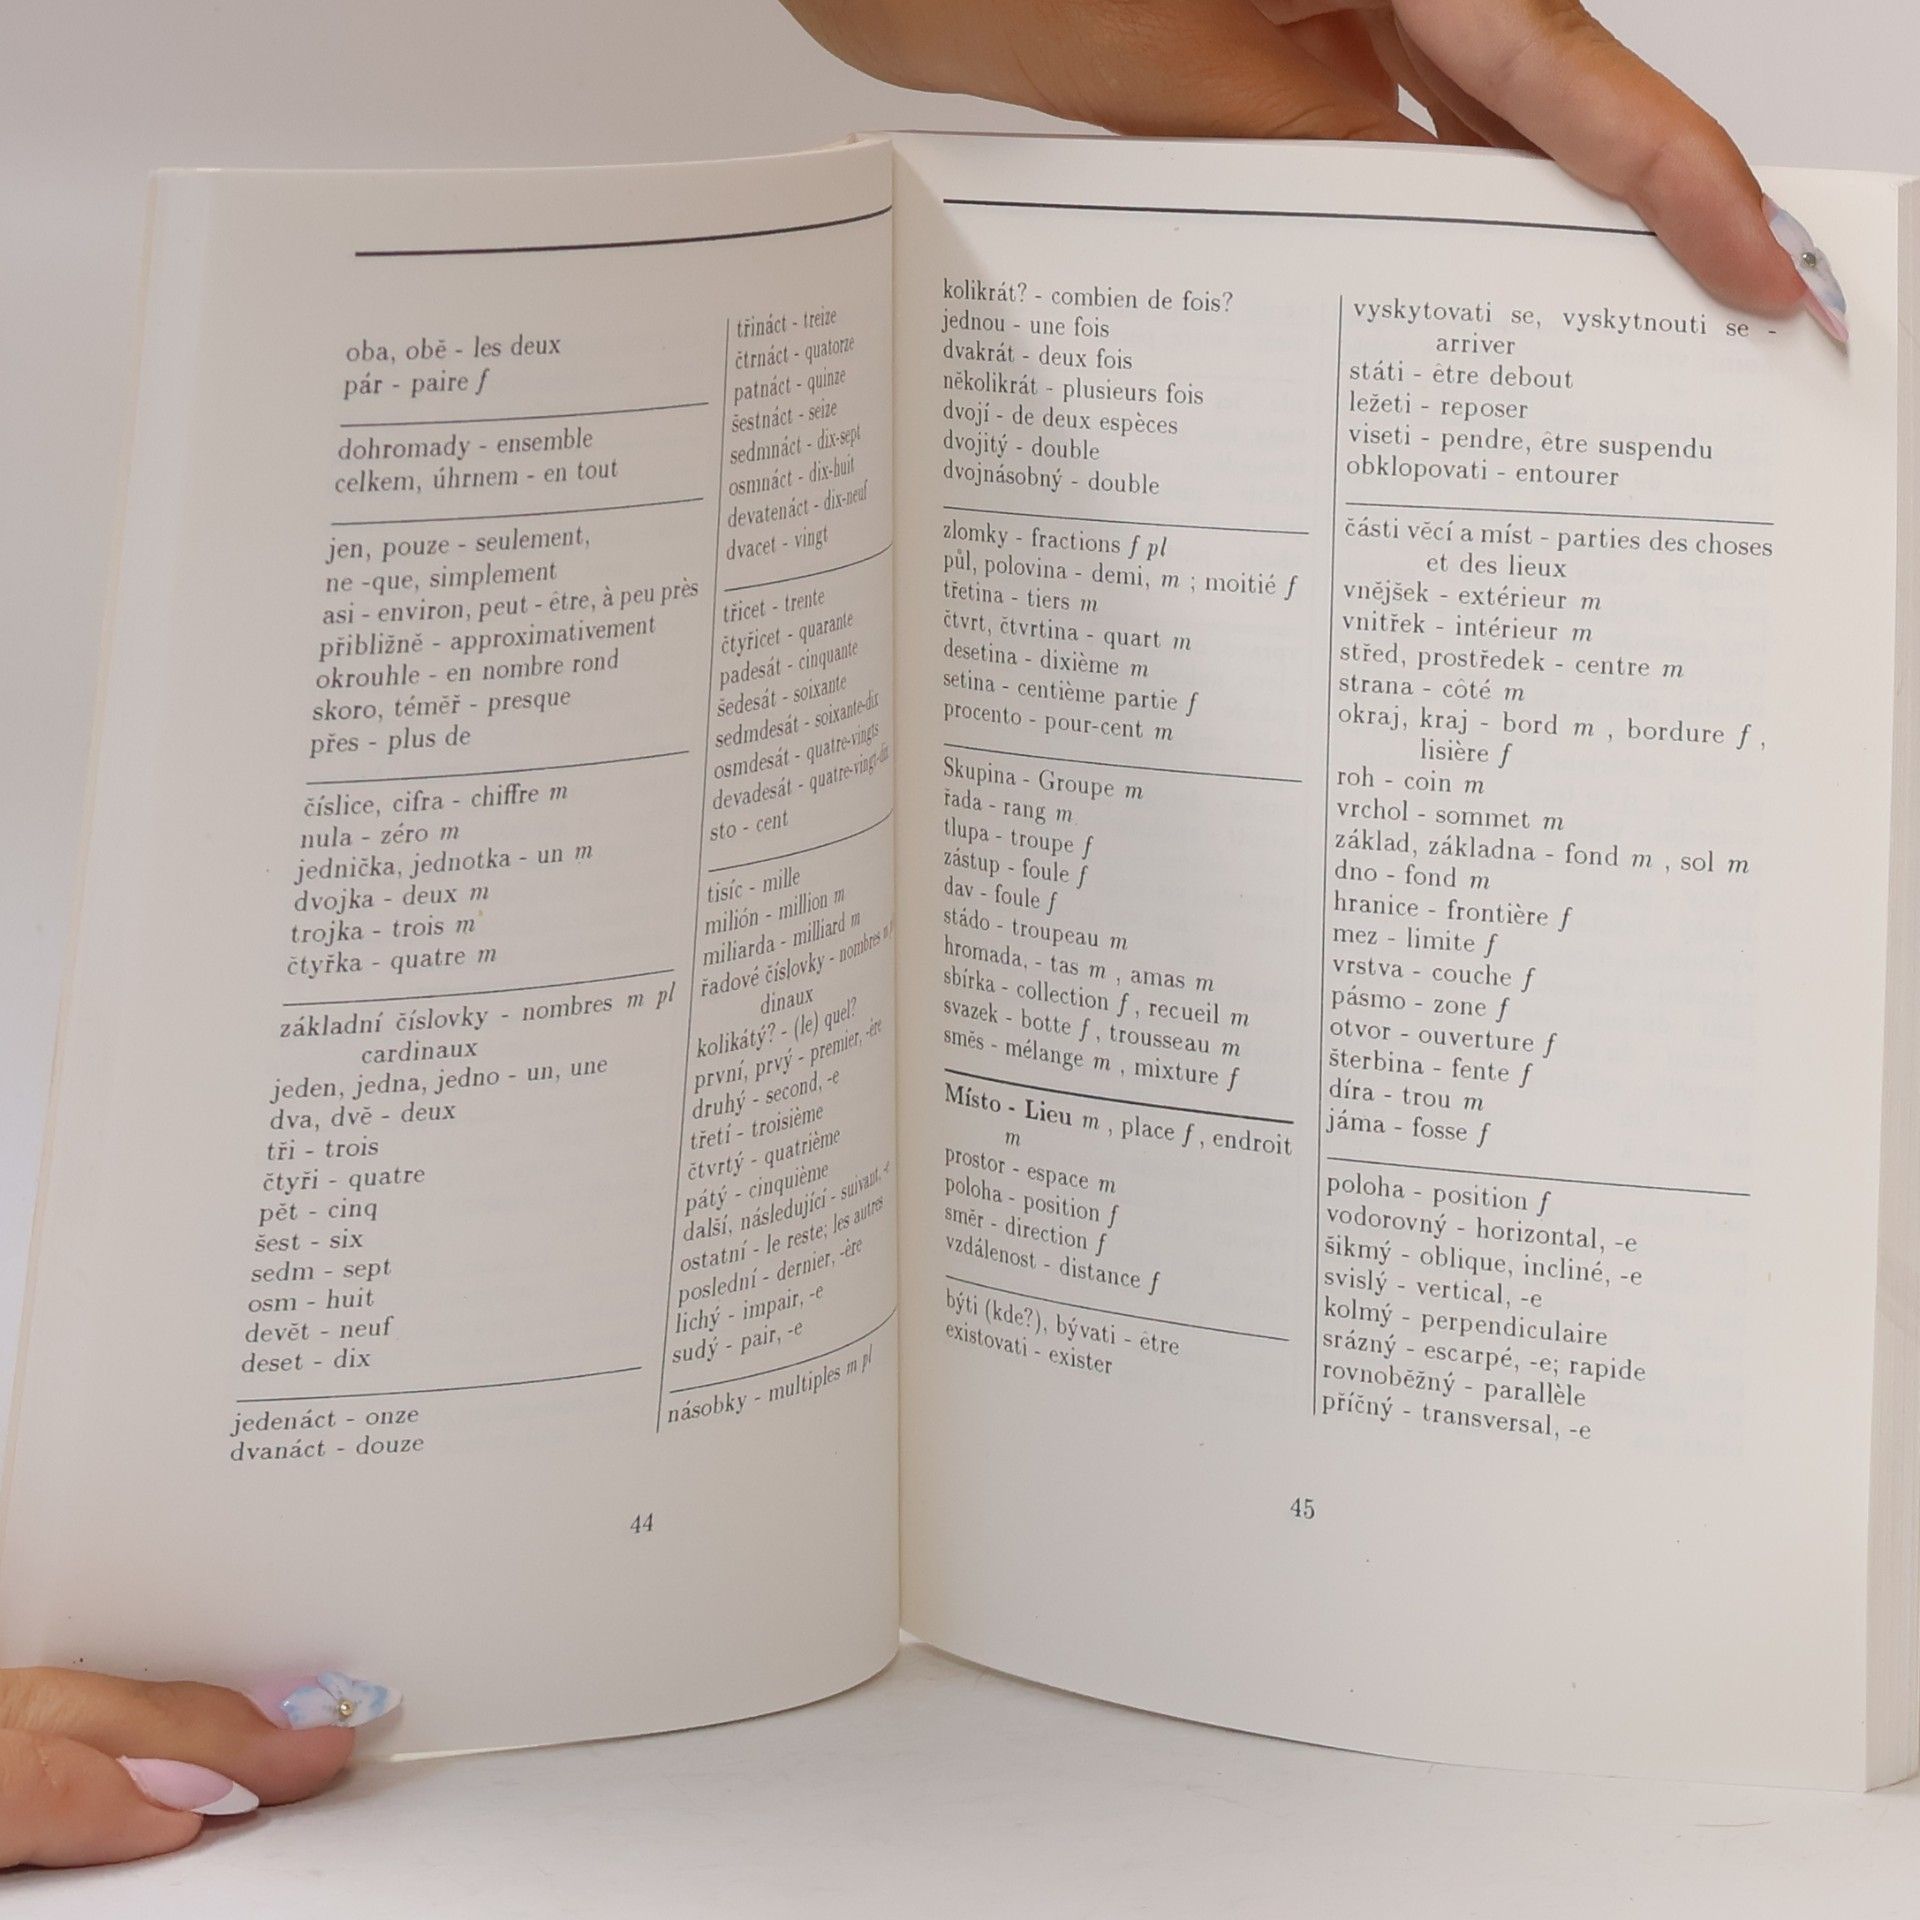 oba, obě - les deux
pár - paire f
dohromady - ensemble
celkem, úhrnem - en tout
jen, pouze - seulement,
ne -que, simplement
asi - environ, peut - être, à peu près
přibližně - approximativement
okrouhle - en nombre rond
skoro, téměř - presque
přes - plus de
číslice, cifra - chiffre m
nula - zéro m
jednička, jednotka - un m
dvojka - deux m
trojka - trois m
čtyřka - quatre m
základní číslovky - nombres m pl
cardinaux
jeden, jedna, jedno - un, une
dva, dvě - deux
tři - trois
čtyři - quatre
pět - cinq
šest - six
sedm - sept
osm - huit
devět - neuf
deset - dix
jedenáct - onze
dvanáct - douze
třináct - treize
čtrnáct - quatorze
patnáct - quinze
šestnáct - seize
sedmnáct - dix-sept
osmnáct - dix-huit
devatenáct - dix-neuf
dvacet - vingt
třicet - trente
čtyřicet - quarante
padesát - cinquante
šedesát - soixante
sedmdesát - soixante-dix
osmdesát - quatre-vingts
devadesát - quatre-vingt-dix
sto - cent
tisíc - mille
milión - million m
miliarda - milliard m
řadové číslovky - nombres m
dinaux
kolikátý? - (le) quel?
první, prvý - premier, -ère
druhý - second, -e
třetí - troisième
čtvrtý - quatrième
pátý - cinquième
další, následující - suivant, -e
ostatní - le reste; les autres
poslední - dernier, -ère
lichý - impair, -e
sudý - pair, -e
násobky - multiples m pl
44
kolikrát? - combien de fois?
jednou - une fois
dvakrát - deux fois
několikrát - plusieurs fois
dvojí - de deux espèces
dvojitý - double
dvojnásobný - double
zlomky - fractions f pl
půl, polovina - demi, m ; moitié f
třetina - tiers m
čtvrt, čtvrtina - quart m
desetina - dixième m
setina - centième partie f
procento - pour-cent m
Skupina - Groupe m
řada - rang m
tlupa - troupe f
zástup - foule f
dav - foule f
stádo - troupeau m
hromada, - tas m , amas m
sbírka - collection f , recueil m
svazek - botte f , trousseau m
směs - mélange m , mixture f
Místo - Lieu m , place f , endroit
m
prostor - espace m
poloha - position f
směr - direction f
vzdálenost - distance f
býti (kde?), bývati - être
existovati - exister
vyskytovati se, vyskytnouti se -
arriver
státi - être debout
ležeti - reposer
viseti - pendre, être suspendu
obklopovati - entourer
části věcí a míst - parties des choses
et des lieux
vnějšek - extérieur m
vnitřek - intérieur m
střed, prostředek - centre m
strana - côté m
okraj, kraj - bord m , bordure f ,
lisière f
roh - coin m
vrchol - sommet m
základ, základna - fond m , sol m
dno - fond m
hranice - frontière f
mez - limite f
vrstva - couche f
pásmo - zone f
otvor - ouverture f
šterbina - fente f
díra - trou m
jáma - fosse f
poloha - position f
vodorovný - horizontal, -e
šikmý - oblique, incliné, -e
svislý - vertical, -e
kolmý - perpendiculaire
srázný - escarpé, -e; rapide
rovnoběžný - parallèle
příčný - transversal, -e
45